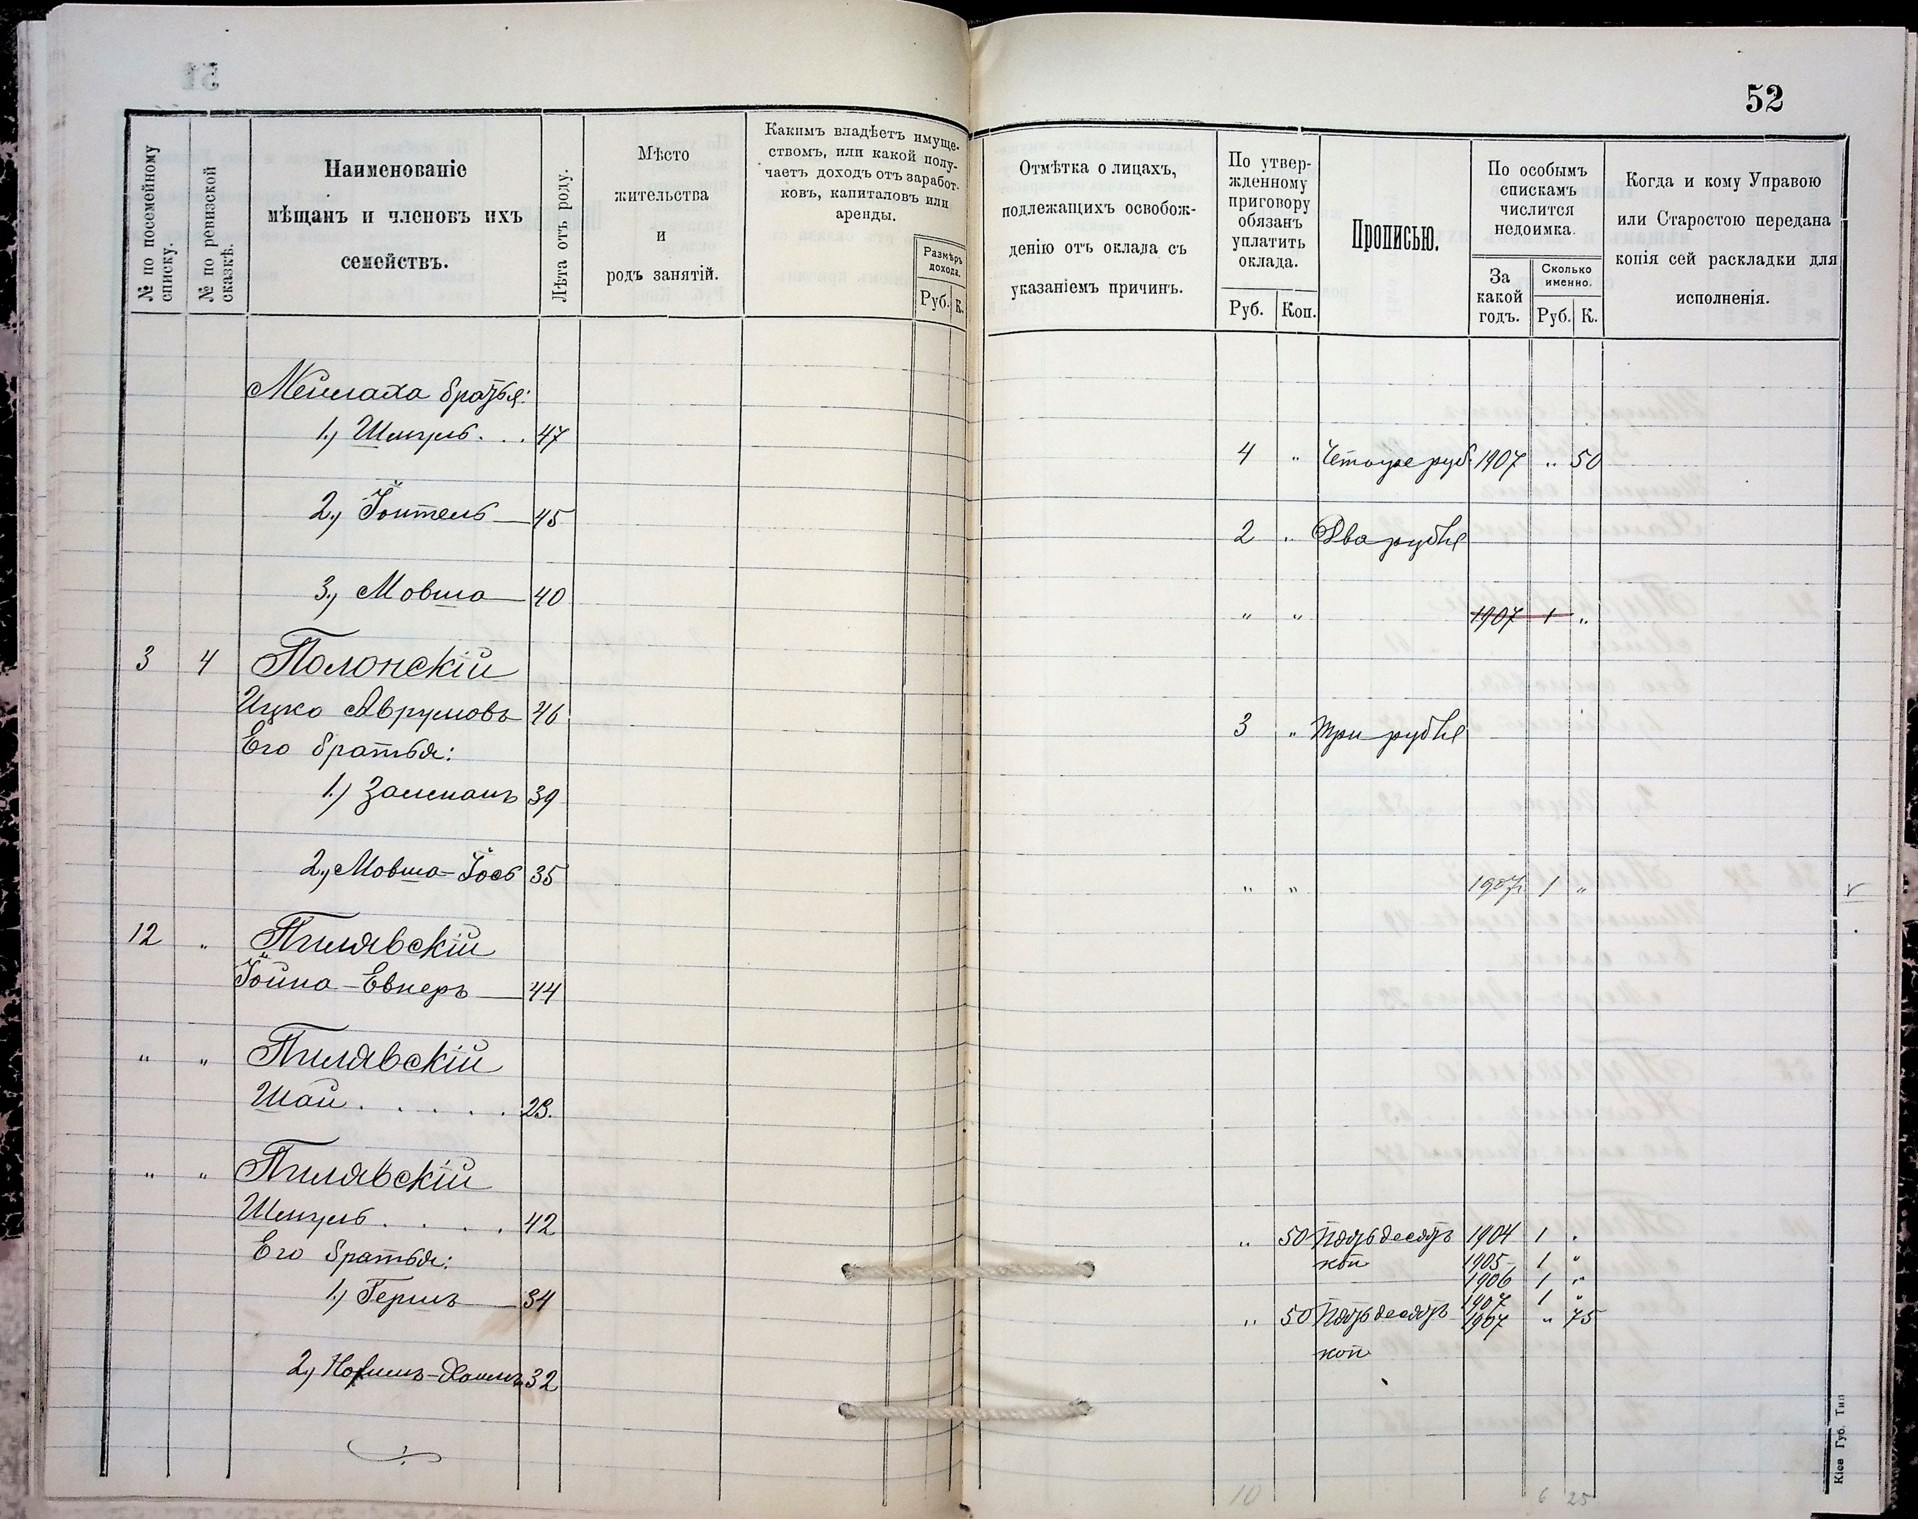 52
№ по посемейному списку.
№ по ревизской сказкѣ.
Наименованіе
мѣщанъ и членовъ ихъ
семействъ.
Лѣта отъ роду.
Мѣсто
жительства
и
родъ занятій.
Какимъ владѣетъ имуще-
ствомъ, или какой полу-
чаетъ доходъ отъ заработ-
ковъ, капиталовъ или
аренды.
Размѣръ
дохода.
Руб. К.
Отмѣтка о лицахъ,
подлежащихъ освобож-
денію отъ оклада съ
указаніемъ причинъ.
По утвер-
жденному
приговору
обязанъ
уплатить
оклада.
Руб. Коп.
Прописью.
По особымъ
спискамъ
числится
недоимка.
За
какой
годъ.
Сколько
именно.
Руб. К.
Когда и кому Управою
или Старостою передана
копія сей раскладки для
исполненія.
Мейлаха братья:
1.) Шмуль . . . 47 4 " Четыре руб. 1907 " 50
2.) Йоитель — 45 2 " Два рубля
3.) Мовша — 40 " " 1907 1 "
3 4 Полонскій
Ицко Аврумовъ 46 3 " Три рубля
Его братья:
1.) Залманъ 39
2.) Мовша-Йось 35 " " 1907 1 "
12 " Пилявскій
Йойна-Евнеръ — 44
" " Пилявскій
Шаи . . . . . 23.
" " Пилявскій
Шмуль . . . . 42 " 50 Пятьдесятъ коп 1904 1 "
1905 1 "
1906 1 "
1907 1 "
Его братья:
1.) Гершъ — 34 " 50 Пятьдесятъ коп 1907 " 75
2.) 32
10 6 25
Кіев Губ. Тип